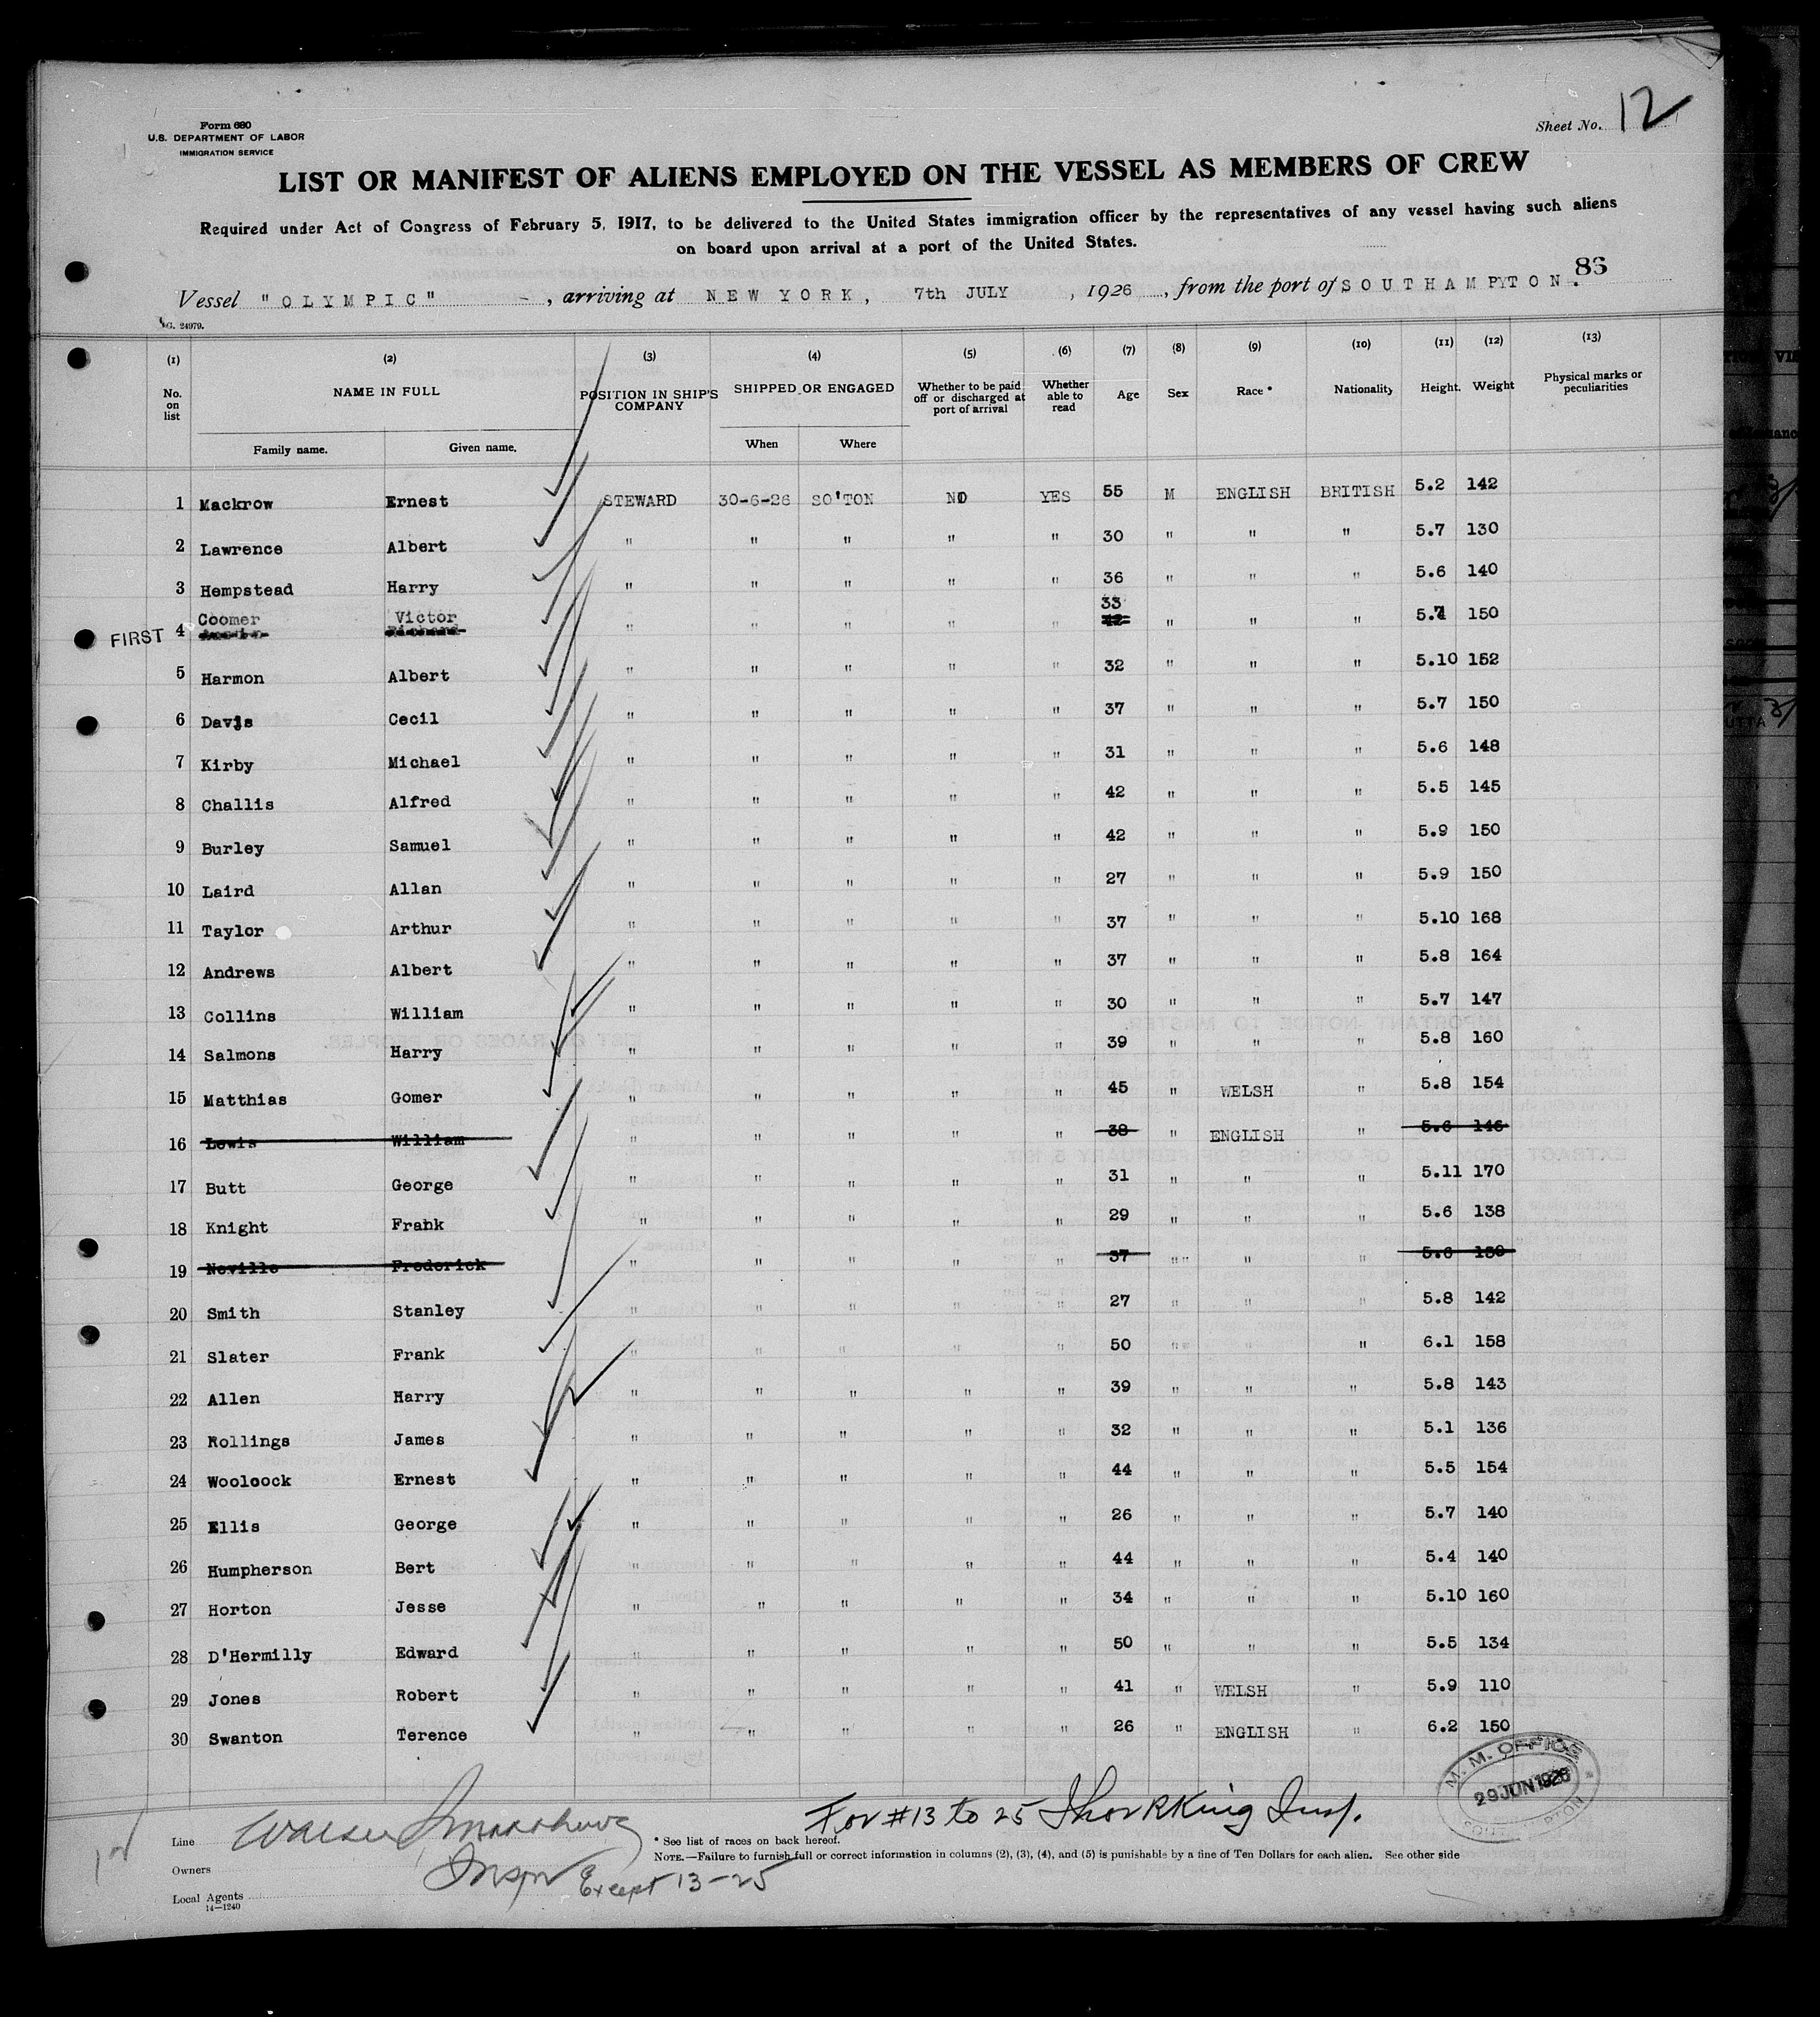 Form 680
U.S. DEPARTMENT OF LABOR
IMMIGRATION SERVICE
Sheet No. 12
LIST OR MANIFEST OF ALIENS EMPLOYED ON THE VESSEL AS MEMBERS OF CREW
Required under Act of Congress of February 5, 1917, to be delivered to the United States immigration officer by the representatives of any vessel having such aliens
on board upon arrival at a port of the United States.
86
Vessel "OLYMPIC" , arriving at NEW YORK, 7th JULY , 1926 , from the port of SOUTHAMPTON.
G. 24979.
(1) (2) (3) (4) (5) (6) (7) (8) (9) (10) (11) (12) (13)
No. on list NAME IN FULL POSITION IN SHIP'S COMPANY SHIPPED OR ENGAGED Whether to be paid off or discharged at port of arrival Whether able to read Age Sex Race * Nationality Height. Weight Physical marks or peculiarities
Family name. Given name. When Where
1 Mackrow Ernest STEWARD 30-6-26 SO'TON NO YES 55 M ENGLISH BRITISH 5.2 142
2 Lawrence Albert " " " " " 30 " " " 5.7 130
3 Hempstead Harry " " " " " 36 " " " 5.6 140
FIRST 4 Coomer Victor Richard " " " " " 33 42 " " " 5.7 150
5 Harmon Albert " " " " " 32 " " " 5.10 152
6 Davis Cecil " " " " " 37 " " " 5.7 150
7 Kirby Michael " " " " " 31 " " " 5.6 148
8 Challis Alfred " " " " " 42 " " " 5.5 145
9 Burley Samuel " " " " " 42 " " " 5.9 150
10 Laird Allan " " " " " 27 " " " 5.9 150
11 Taylor Arthur " " " " " 37 " " " 5.10 168
12 Andrews Albert " " " " " 37 " " " 5.8 164
13 Collins William " " " " " 30 " " " 5.7 147
14 Salmons Harry " " " " " 39 " " " 5.8 160
15 Matthias Gomer " " " " " 45 " WELSH " 5.8 154
16 Lewis William " " " " " 38 " ENGLISH " 5.6 146
17 Butt George " " " " " 31 " " " 5.11 170
18 Knight Frank " " " " " 29 " " " 5.6 138
19 Neville Frederick " " " " " 37 " " " 5.6 150
20 Smith Stanley " " " " " 27 " " " 5.8 142
21 Slater Frank " " " " " 50 " " " 6.1 158
22 Allen Harry " " " " " 39 " " " 5.8 143
23 Rollings James " " " " " 32 " " " 5.1 136
24 Woolcock Ernest " " " " " 44 " " " 5.5 154
25 Ellis George " " " " " 26 " " " 5.7 140
26 Humpherson Bert " " " " " 44 " " " 5.4 140
27 Horton Jesse " " " " " 34 " " " 5.10 160
28 D'Hermilly Edward " " " " " 50 " " " 5.5 134
29 Jones Robert " " " " " 41 " WELSH " 5.9 110
30 Swanton Terence " " " " " 26 " ENGLISH " 6.2 150
M. M. OFFICE
29 JUN 1926
For #13 to 25 King Insp.
Line
* See list of races on back hereof.
NOTE.—Failure to furnish full or correct information in columns (2), (3), (4), and (5) is punishable by a fine of Ten Dollars for each alien. See other side
Owners
Except 13-25
Local Agents
14—1240